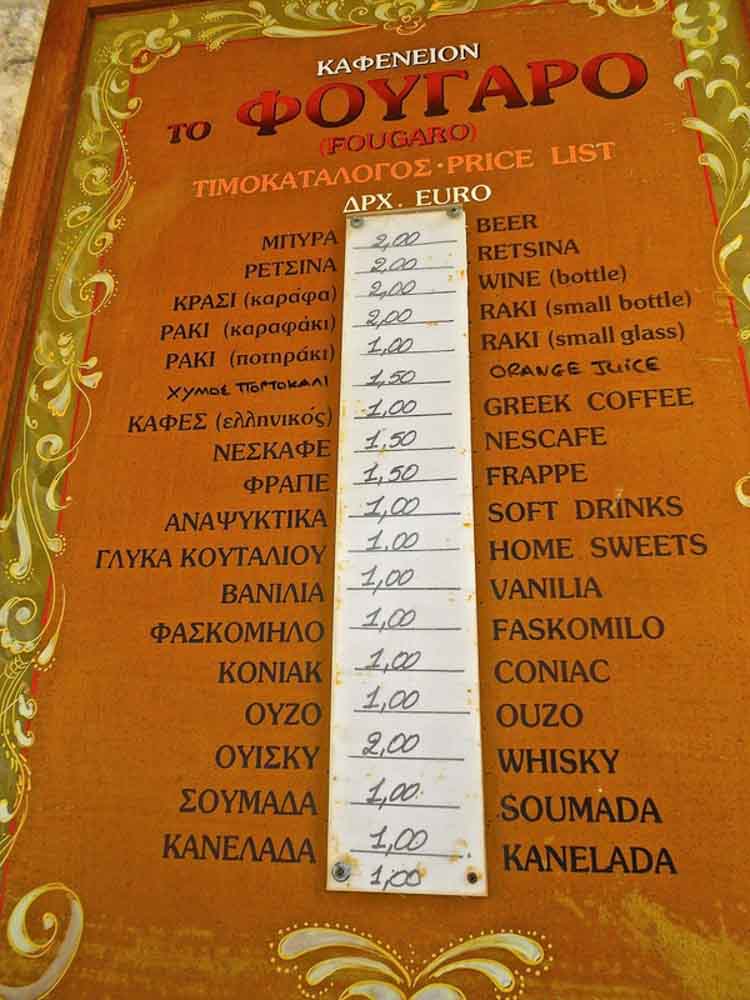 ΚΑΦΕΝΕΙΟΝ
ΤΟ ΦΟΥΓΑΡΟ
(FOUGARO)
ΤΙΜΟΚΑΤΑΛΟΓΟΣ · PRICE LIST
ΔΡΧ. EURO
ΜΠΥΡΑ 2,00 BEER
ΡΕΤΣΙΝΑ 2,00 RETSINA
ΚΡΑΣΙ (καράφα) 2,00 WINE (bottle)
ΡΑΚΙ (καραφάκι) 2,00 RAKI (small bottle)
ΡΑΚΙ (ποτηράκι) 1,00 RAKI (small glass)
ΧΥΜΟΣ ΠΟΡΤΟΚΑΛΙ 1,50 ORANGE JUICE
ΚΑΦΕΣ (ελληνικός) 1,00 GREEK COFFEE
ΝΕΣΚΑΦΕ 1,50 NESCAFE
ΦΡΑΠΕ 1,50 FRAPPE
ΑΝΑΨΥΚΤΙΚΑ 1,00 SOFT DRINKS
ΓΛΥΚΑ ΚΟΥΤΑΛΙΟΥ 1.00 HOME SWEETS
ΒΑΝΙΛΙΑ 1,00 VANILIA
ΦΑΣΚΟΜΗΛΟ 1,00 FASKOMILO
ΚΟΝΙΑΚ 1,00 CONIAC
ΟΥΖΟ 1,00 OUZO
ΟΥΙΣΚΥ 2,00 WHISKY
ΣΟΥΜΑΔΑ 1,00 SOUMADA
ΚΑΝΕΛΑΔΑ 1,00 KANELADA
1,00